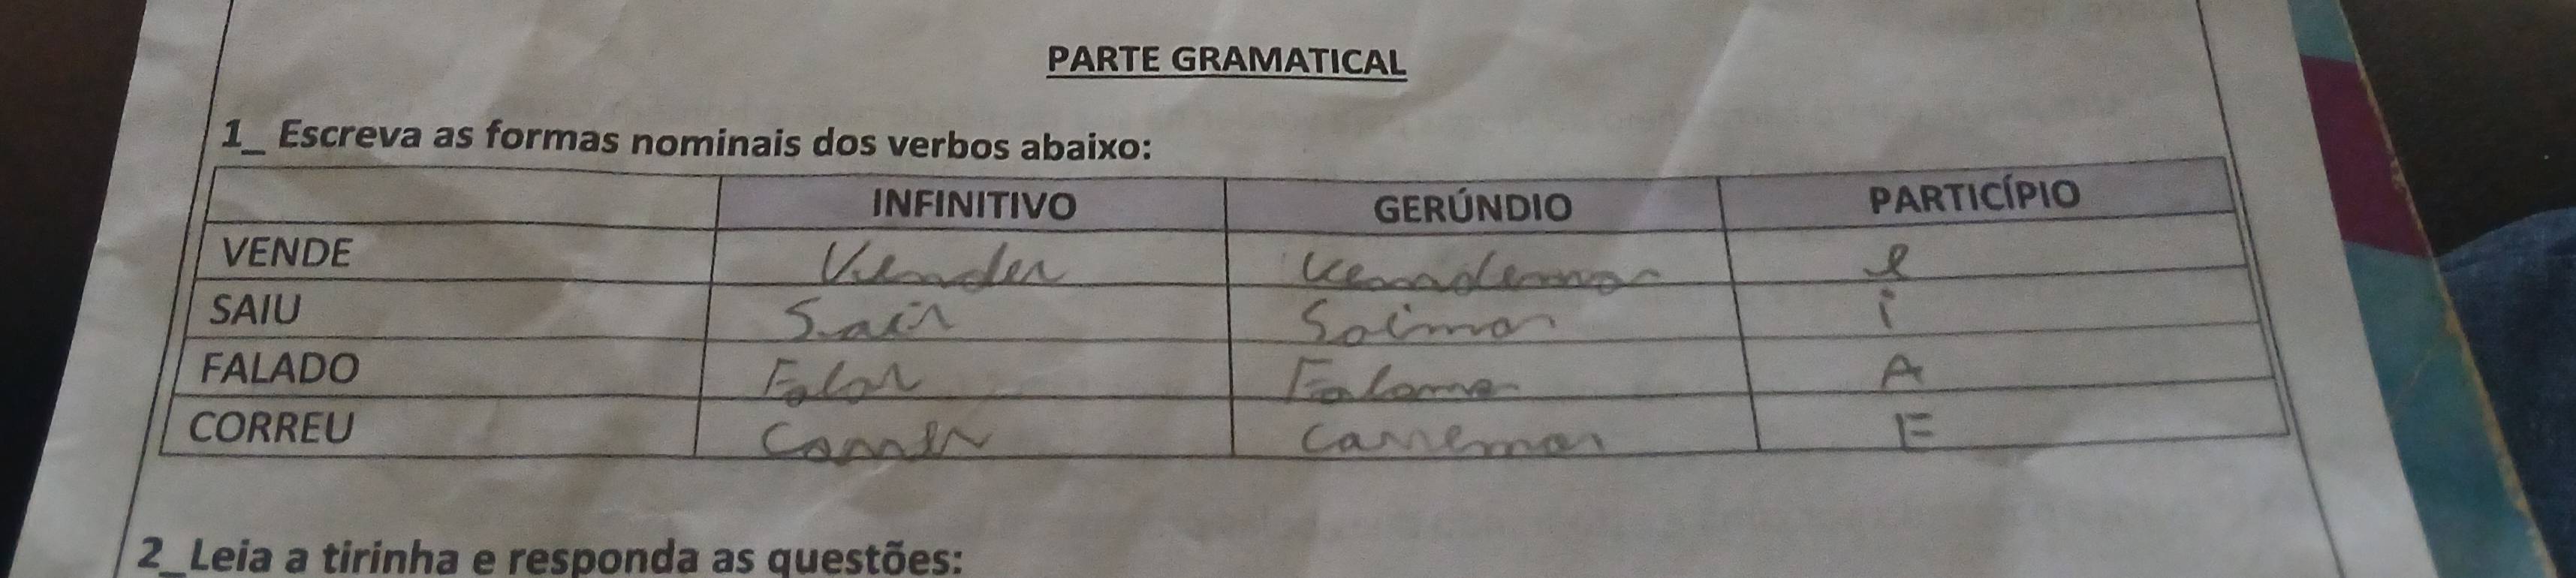 PARTE GRAMATICAL
1_ Escreva as formas nominais dos verbos abaixo:
INFINITIVO GERÚNDIO PARTICÍPIO
VENDE Vender Vendemos e
SAIU Sair Saimos i
FALADO Falar Falamos A
CORREU Correr Corremos E
2_Leia a tirinha e responda as questões: